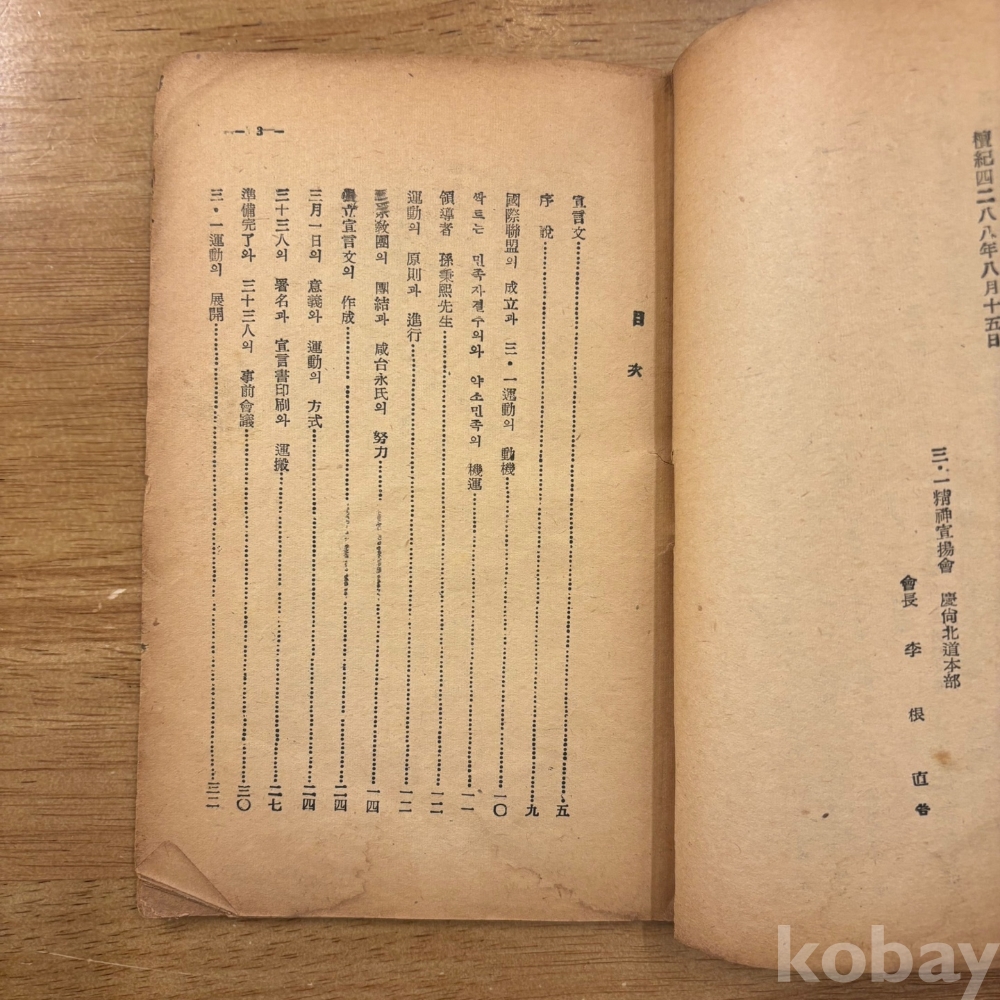 檀紀四二八八年八月十五日
三·一精神宣揚會 慶尙北道本部
會長 李根直
目次
宣言文……五
序說……九
國際聯盟의 成立과 三·一運動의 動機……一〇
싹트는 민족자결주의와 약소민족의 機運……一一
領導者 孫秉熙先生……一二
運動의 原則과 進行……一二
三宗敎團의 團結과 咸台永氏의 努力……一四
獨立宣言文의 作成……二四
三月一日의 意義와 運動의 方式……二四
三十三人의 署名과 宣言書印刷와 運搬……二七
準備完了와 三十三人의 事前會議……三〇
三·一運動의 展開……三二
— 3 —
kobay